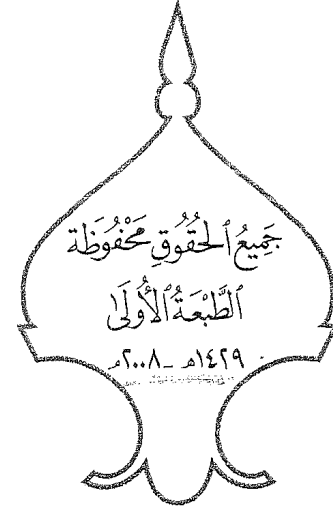 جَمِيعُ ٱلْحُقُوقِ مَحْفُوظَة
ٱلطَّبْعَةُ ٱلْأُولَىٰ
١٤٢٩هـ - ٢٠٠٨م